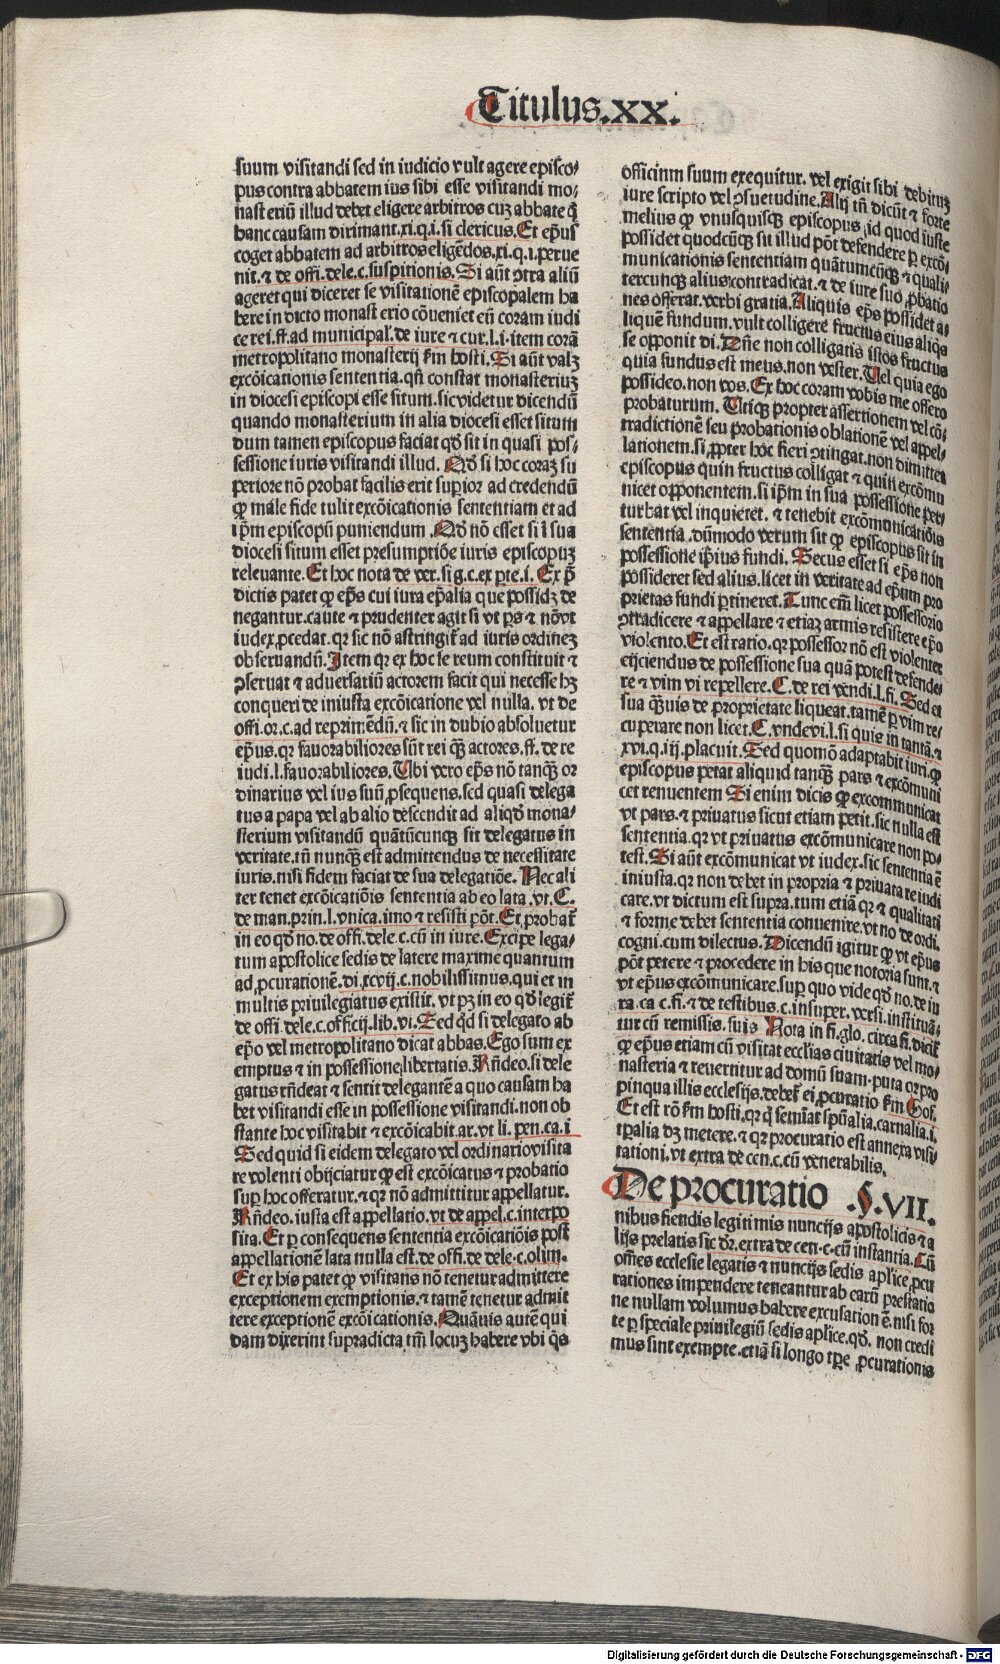 Titulus.XX.
suum visitandi sed in iudicio vult agere episco⸗
pus contra abbatem ius sibi esse visitandi mo⸗
nasteriū illud debet eligere arbitros cuꝫ abbate q̄
hanc causam dirimant.xi.q.i.si clericus.Et ep̄us
coget abbatem ad arbitros eligēdos.xi.q.i.perue
nit.⁊ de offi.dele.c.suspitionis.Si aūt ↄtra aliū
ageret qui diceret se visitationē episcopalem ha
bere in dicto monasterio cōueniet eū coram iudi
ce rei.ff.ad municipal.de iure ⁊ cur.l.i.item corā
metropolitano monasterij ẜm hosti.Si aūt valꝫ
excōicationis sententia.qn̄ constat monasteriuꝫ
in diocesi episcopi esse situm.sic videtur dicendū
quando monasterium in alia diocesi esset situm
dum tamen episcopus faciat qd̄ sit in quasi pos⸗
sessione iuris visitandi illud. Qd̄ si hoc coraꝫ su
periore nō probat facilis erit suꝑior ad credendū
ꝙ male fide tulit excōicationis sententiam et ad
ip̄m episcopū puniendum. Qd̄ nō esset si ī sua
diocesi situm esset presumptiōe iuris episcopuꝫ
releuante.Et hoc nota de ver.sig.c.ex ꝑte.i. Ex p̄
dictis patet ꝙ ep̄us cui iura ep̄alia que possidꝫ de
negantur.caute ⁊ prudenter agit si vt ꝑs ⁊ nō vt
iudex ꝓcedat.qꝛ sic nō astringit̄ ad iuris ordineꝫ
obseruandū.Item qꝛ ex hoc se reum constituit ⁊
ↄseruat ⁊ aduersariū actorem facit qui necesse hꝫ
conqueri de iniusta excōicatione vel nulla. vt de
offi.or.c.ad reprimēdū.⁊ sic in dubio absoluetur
ep̄us.qꝛ fauorabiliores sūt rei q̄ꝫ actores.ff.de re
iudi.l.fauorabiliores.Ubi vero ep̄s nō tanq̄ꝫ or
dinarius vel ius suū ꝓsequens.sed quasi delega
tus a papa vel ab alio descendit ad aliqd̄ mona⸗
sterium visitandū quātūcunqꝫ sit delegatus in
veritate.tn̄ nunq̄ꝫ est admittendus de necessitate
iuris.nisi fidem faciat de sua delegatiōe. Nec ali
ter tenet excōicatiōis sententia ab eo lata.vt.C.
de man.prin.l.vnica.imo ⁊ resisti pōt.Et probat̄
in eo qd̄ no.de offi.dele.c.cū in iure.Excipe lega⸗
tum apostolice sedis de latere maxime quantum
ad ꝓcurationē.di.xcvij.c.nobilissimus.qui et in
multis priuilegiatus existit. vt pꝫ in eo qd̄ legit̄
de offi.dele.c.officij.lib.vi.Sed qd̄ si delegato ab
ep̄o vel metropolitano dicat abbas.Ego sum ex
emptus ⁊ in possessione libertatis.Rn̄deo.si dele
gatus rn̄deat ⁊ sentit delegantē a quo causam ha
bet visitandi esse in possessione visitandi.non ob
stante hoc visitabit ⁊ excōicabit ar.vt li. pen.ca.i
Sed quid si eidem delegato vel ordinario visita
re volenti obijciatur ꝙ est excōicatus ⁊ probatio
suꝑ hoc offeratur.⁊ qꝛ nō admittitur appellatur.
Rn̄deo.iusta est appellatio.vt de appel.c.interpo
sita.Et ꝑ consequens sententia excōicatiōis post
appellationē lata nulla est.de offi.de dele.c.olim.
Et ex his patet ꝙ visitans nō tenetur admittere
exceptionem exemptionis.⁊ tamē tenetur admit
tere exceptionē excōicationis.Quāuis autē qui
dam dixerint supradicta tm̄ locuꝫ habere vbi q̄s
officium suum exequitur. vel exigit sibi debituꝫ
iure scripto vel ↄsuetudine.Alij tn̄ dicūt ⁊ forte
melius ꝙ vnusquisqꝫ episcopus id quod iuste
possidet quodcūqꝫ sit illud pōt defendere ꝑ excō⸗
municationis sententiam quātumcūqꝫ ⁊ quali⸗
tercunqꝫ alius contradicat.⁊ de iure suo ꝓbatio
nes offerat.verbi gratia.Aliquis ep̄s possidet a⸗
liquē fundum.vult colligere fructus eius aliqs
se opponit di.Dn̄e non colligatis istos fructus
quia fundus est meus.non vester.Uel quia ego
possideo.non vos.Ex hoc coram vobis me offero
probaturum. Utiqꝫ propter assertionem vel cō⸗
tradictionē seu probationis oblationē vel appel⸗
lationem.si ꝓpter hoc fieri ↄtingat.non dimittet
episcopus quin fructus colligat ⁊ quin excōmu
nicet opponentem.si ip̄m in sua possessione per⸗
turbat vel inquietet. ⁊ tenebit excōmunicatiōis
sententia .dūmodo verum sit ꝙ episcopus sit in
possessione ip̄ius fundi. Secus esset si ep̄s non
possideret sed alius.licet in veritate ad ep̄um pro
prietas fundi ꝑtineret.Tunc em̄ licet possessorio
ↄtradicere ⁊ appellare ⁊ etiaꝫ armis resistere ep̄o
violento.Et est ratio.qꝛ possessor nō est violenter
eijciendus de possessione sua quā potest defende⸗
re ⁊ vim vi repellere.C.de rei vendi.l.fi. Sed et
sua q̄uis de proprietate liqueat.tamē ꝑ vim re⸗
cuperare non licet.C.vnde vi.l.si quis in tantā.⁊
xvi.q.iij.placuit.Sed quomō adaptabit iuri.ꝙ
episcopus petat aliquid tanq̄ꝫ pars ⁊ excōmuni
cet renuentem Si enim dicis ꝙ excommunicat
vt pars.⁊ priuatus sicut etiam petit.sic nulla est
sententia.qꝛ vt priuatus excōmunicare non po⸗
test.Si aūt excōmunicat vt iudex.sic sententia ē
iniusta.qꝛ non debet in propria ⁊ priuata re iudi
care.vt dictum est supra.tum etiā qꝛ ⁊ qualitati
⁊ forme debet sententia conuenire.vt no de ordi.
cogni.cum dilectus. Dicendū igitur ꝙ vt ep̄us
pōt petere ⁊ procedere in his que notoria sunt.⁊
vt ep̄us excōmunicare.suꝑ quo vide qd̄ no.de in
ra.ca c.fi.⁊ de testibus.c.insuper.versi.instituā⸗
tur cū remissis.suis Nota in fi.glo.circa fi.dicit̄
ꝙ ep̄us etiam cū visitat eccl̄ias ciuitatis vel mo⸗
nasteria ⁊ reuertitur ad domū suam.puta qꝛ pro
pinqua illis ecclesijs.debet̄ ei ꝓcuratio ẜm Gof.
Et est rō ẜm hosti.qꝛ q̄ semīat spūalia.carnalia.i.
tꝑalia dꝫ metere.⁊ qꝛ procuratio est annexa visi⸗
tationi.vt extra de cen.c.cū venerabilis.
De procuratio .§.VII.
nibus fiendis legitimis nuncijs apostolicis ⁊ a
lijs prelatis sic dr̄.extra de cen.c.cū instantia.Cū
om̄es ecclesie legatis ⁊ nuncijs sedis aplīce ꝓcu
rationes impendere teneantur ab earū prestatio
ne nullam volumus habere excusationē.nisi for
te ꝑ speciale priuilegiū sedis aplīce.qd̄. non credi
mus sint exempte.etiā si longo tꝑe ꝓcurationis
Digitalisierung gefördert durch die Deutsche Forschungsgemeinschaft - DFG